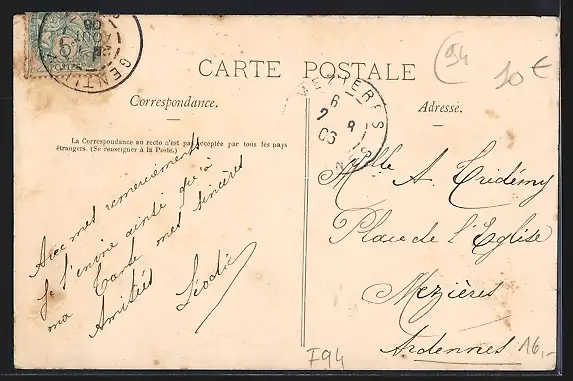 5
GENTIL
AOUT
06
CARTE POSTALE
94
10 €
Correspondance.
Adresse.
MEZIERES
6
2 8
06
La Correspondance au recto n'est pas acceptée par tous les pays
étrangers. (Se renseigner à la Poste.)
Avec mes remerciements
je t'envoie ainsi qu'à
ma Tante mes sincères
Amitiés
Melle A. Tridémy
Place de l'Eglise
Mezières
Ardennes
F94
16,-